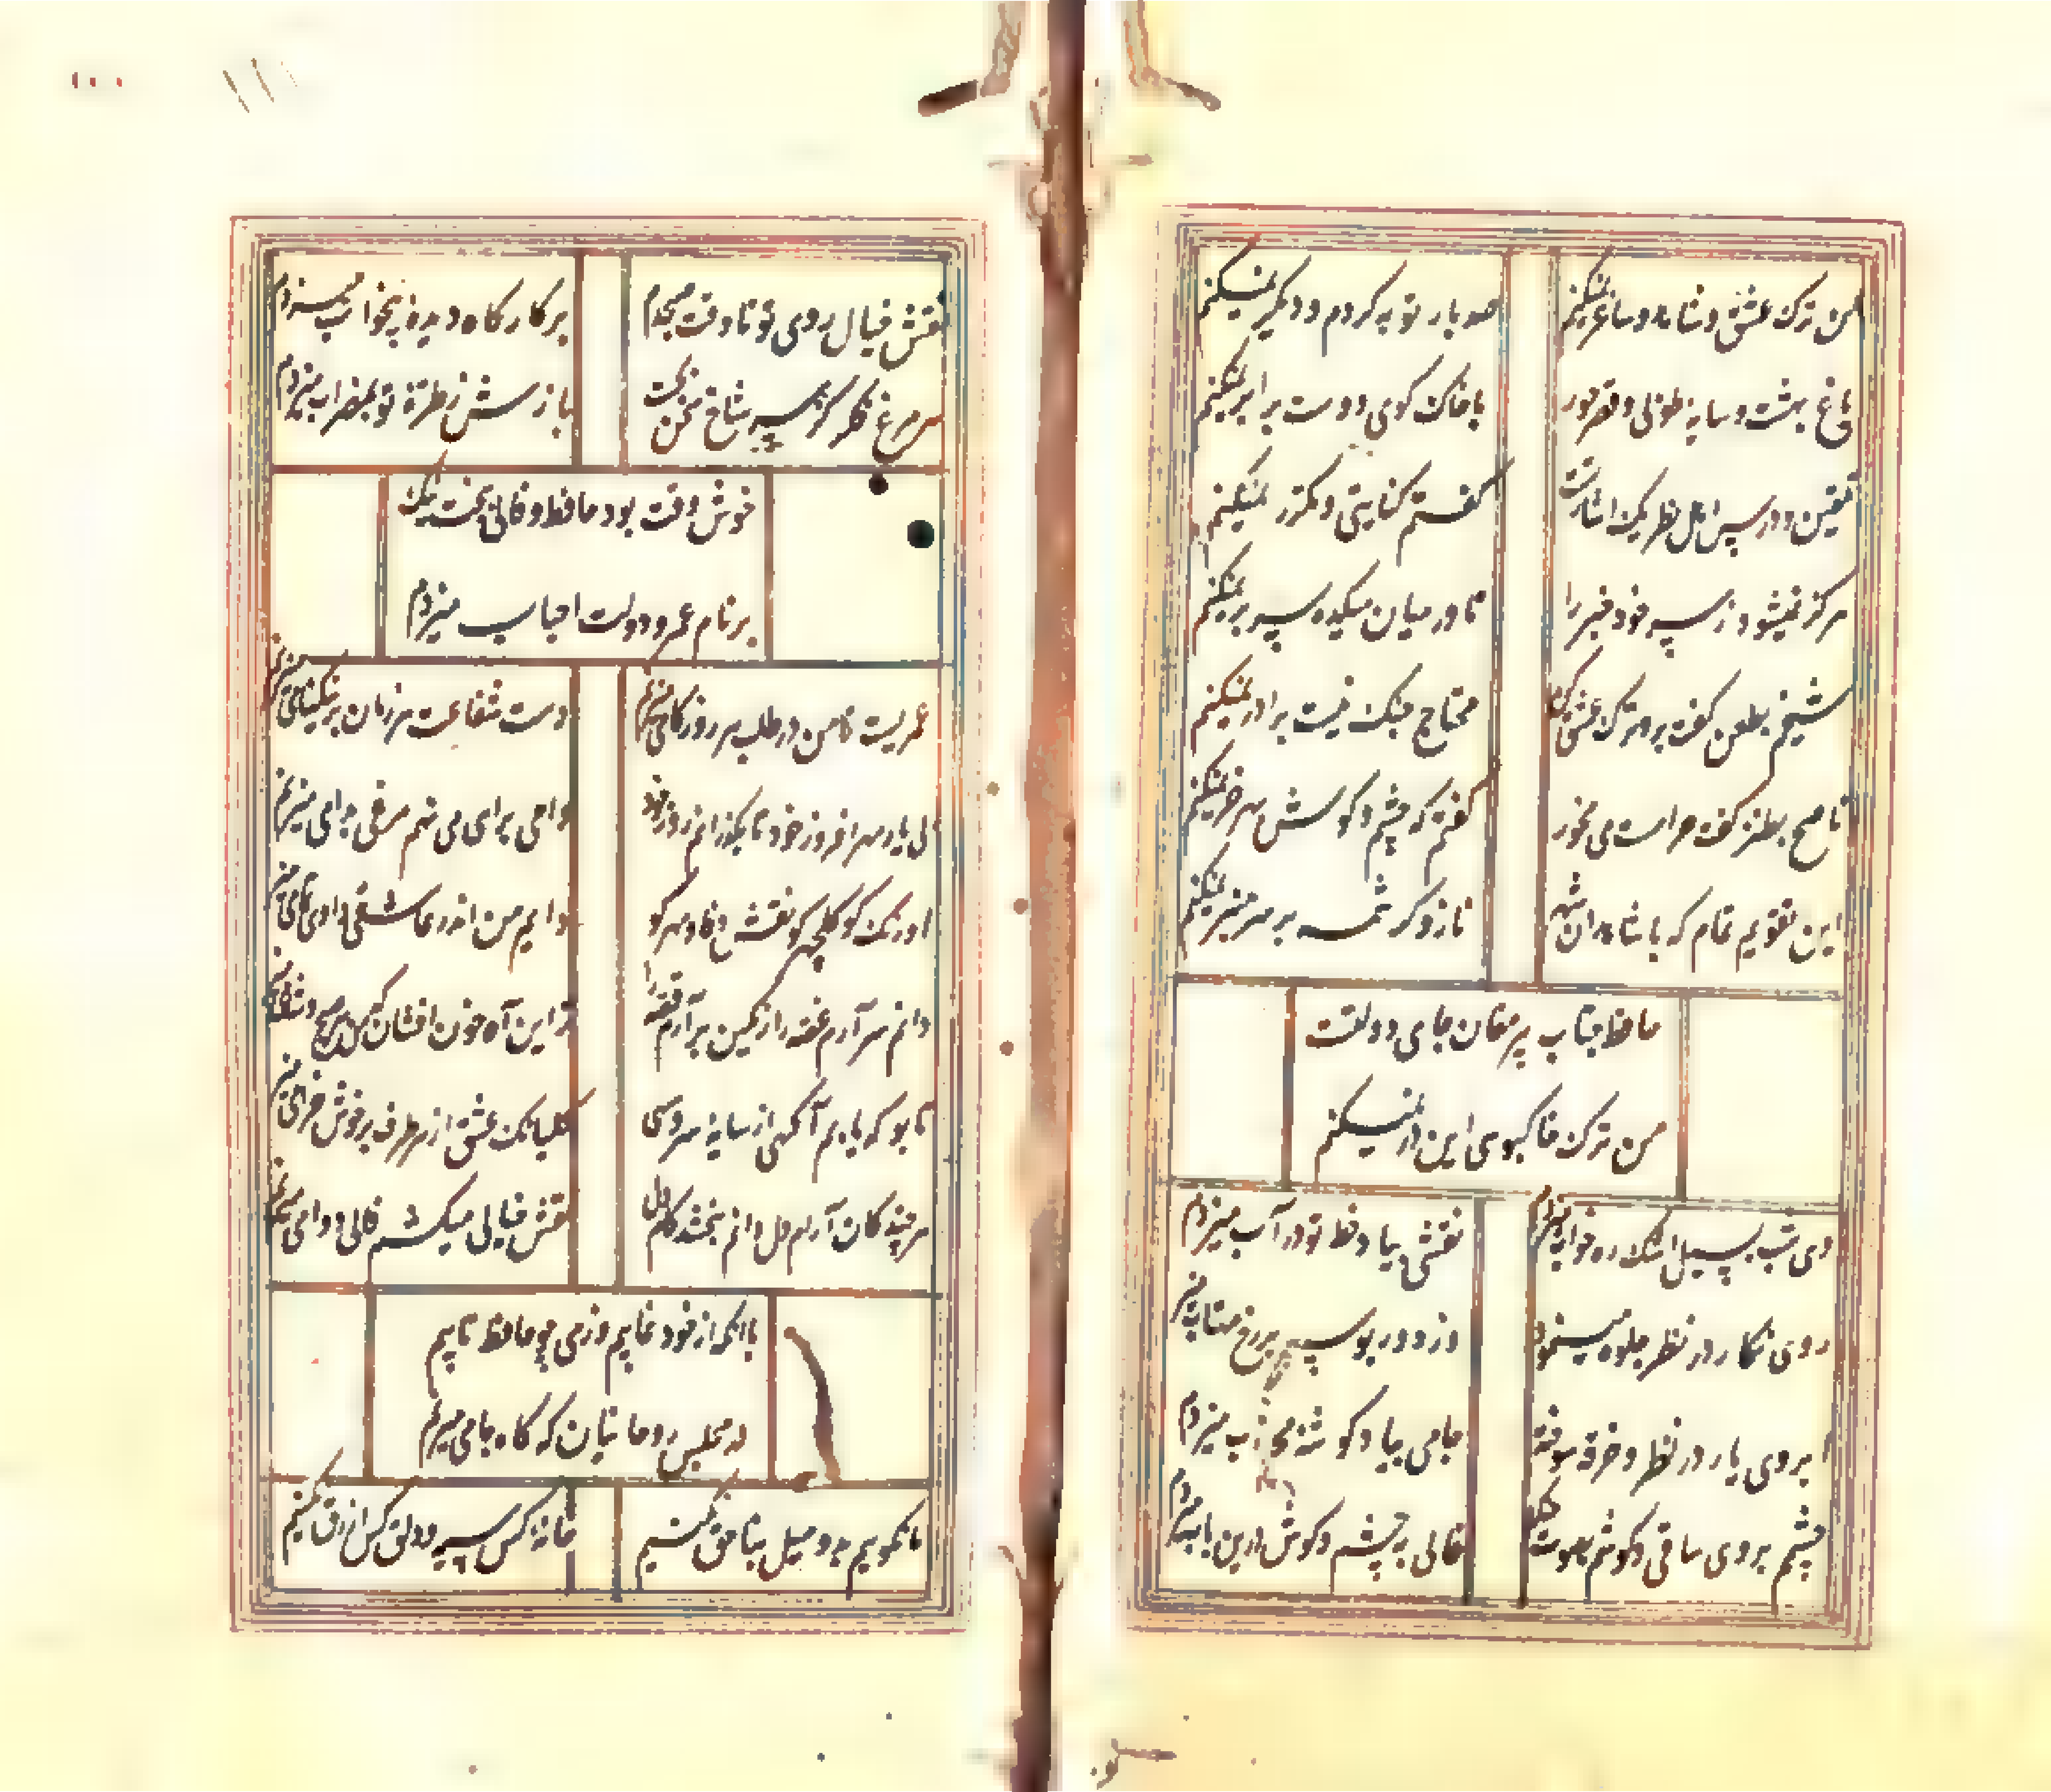 من ترک عشق و شاهد و ساغر نمیکنم
صد بار توبه کردم و دیگر نمیکنم
باغ بهشت و سایه طوبی و قصر حور
با خاک کوی دوست برابر نمیکنم
تلقین و درس اهل نظر یک اشارتست
گفتم کنایتی و مکرر نمیکنم
هرگز نمیشود ز سر خود خبر مرا
تا در میان میکده سر بر نمیکنم
شیخم بطعن گفت برو ترک عشق کن
محتاج جنگ نیست برادر نمیکنم
ناصح بطنز گفت حرامست می مخور
گفتم که چشم و گوش بهر خر نمیکنم
این تقویم تمام که با شاهدان شهر
ناز و کرشمه بر سر منبر نمیکنم
حافظ جناب پیر مغان جای دولتست
من ترک خاکبوسی این در نمیکنم
دی شب بسیل اشک ره خواب میزدم
نقشی بیاد خط تو در آب میزدم
روی نگار در نظرم جلوه مینمود
وز دور بوسه بر رخ مهتاب میزدم
ابروی یار در نظر و خرقه سوخته
جامی بیاد گوشه محراب میزدم
چشمم بروی ساقی و گوشم بصوت چنگ
فالی بچشم و گوش درین باب میزدم
نقش خیال روی تو تا وقت صبحدم
بر کارگاه دیده بیخواب میزدم
هر مرغ فکر کز سر شاخ سخن بجست
بازش ز طره تو بمضراب میزدم
خوش وقت بود حافظ و فالی ببخت نیک
بر نام عمر و دولت احباب میزدم
عمریست تا من در طلب هر روز گامی میزنم
دست شفاعت هر زمان بر نیکنامی میزنم
بی یار مهر افروز خود تا بگذرانم روز خود
دامی براهی می نهم مرغی بدامی میزنم
اورنگ کو گلچهر کو نقش وفا و مهر کو
دایم من اندر عاشقی داو تمامی میزنم
دانم سر آرد غصه را رنگین برآرد قصه را
این آه خون افشان که من هر صبح و شامی میزنم
تا بو که یابم آگهی از سایه سرو سهی
گلبانگ عشق از هر طرف بر خوش خرامی میزنم
هر چند کان آرام دل دانم نبخشد کام دل
نقش خیالی میکشم فالی دوامی میزنم
با آنکه از خود غایبم وز می چو حافظ تایبم
در مجلس روحانیان گه گاه جامی میزنم
ما نگوییم بد و میل بناحق نکنیم
جامه کس سیه و دلق کس ازرق نکنیم